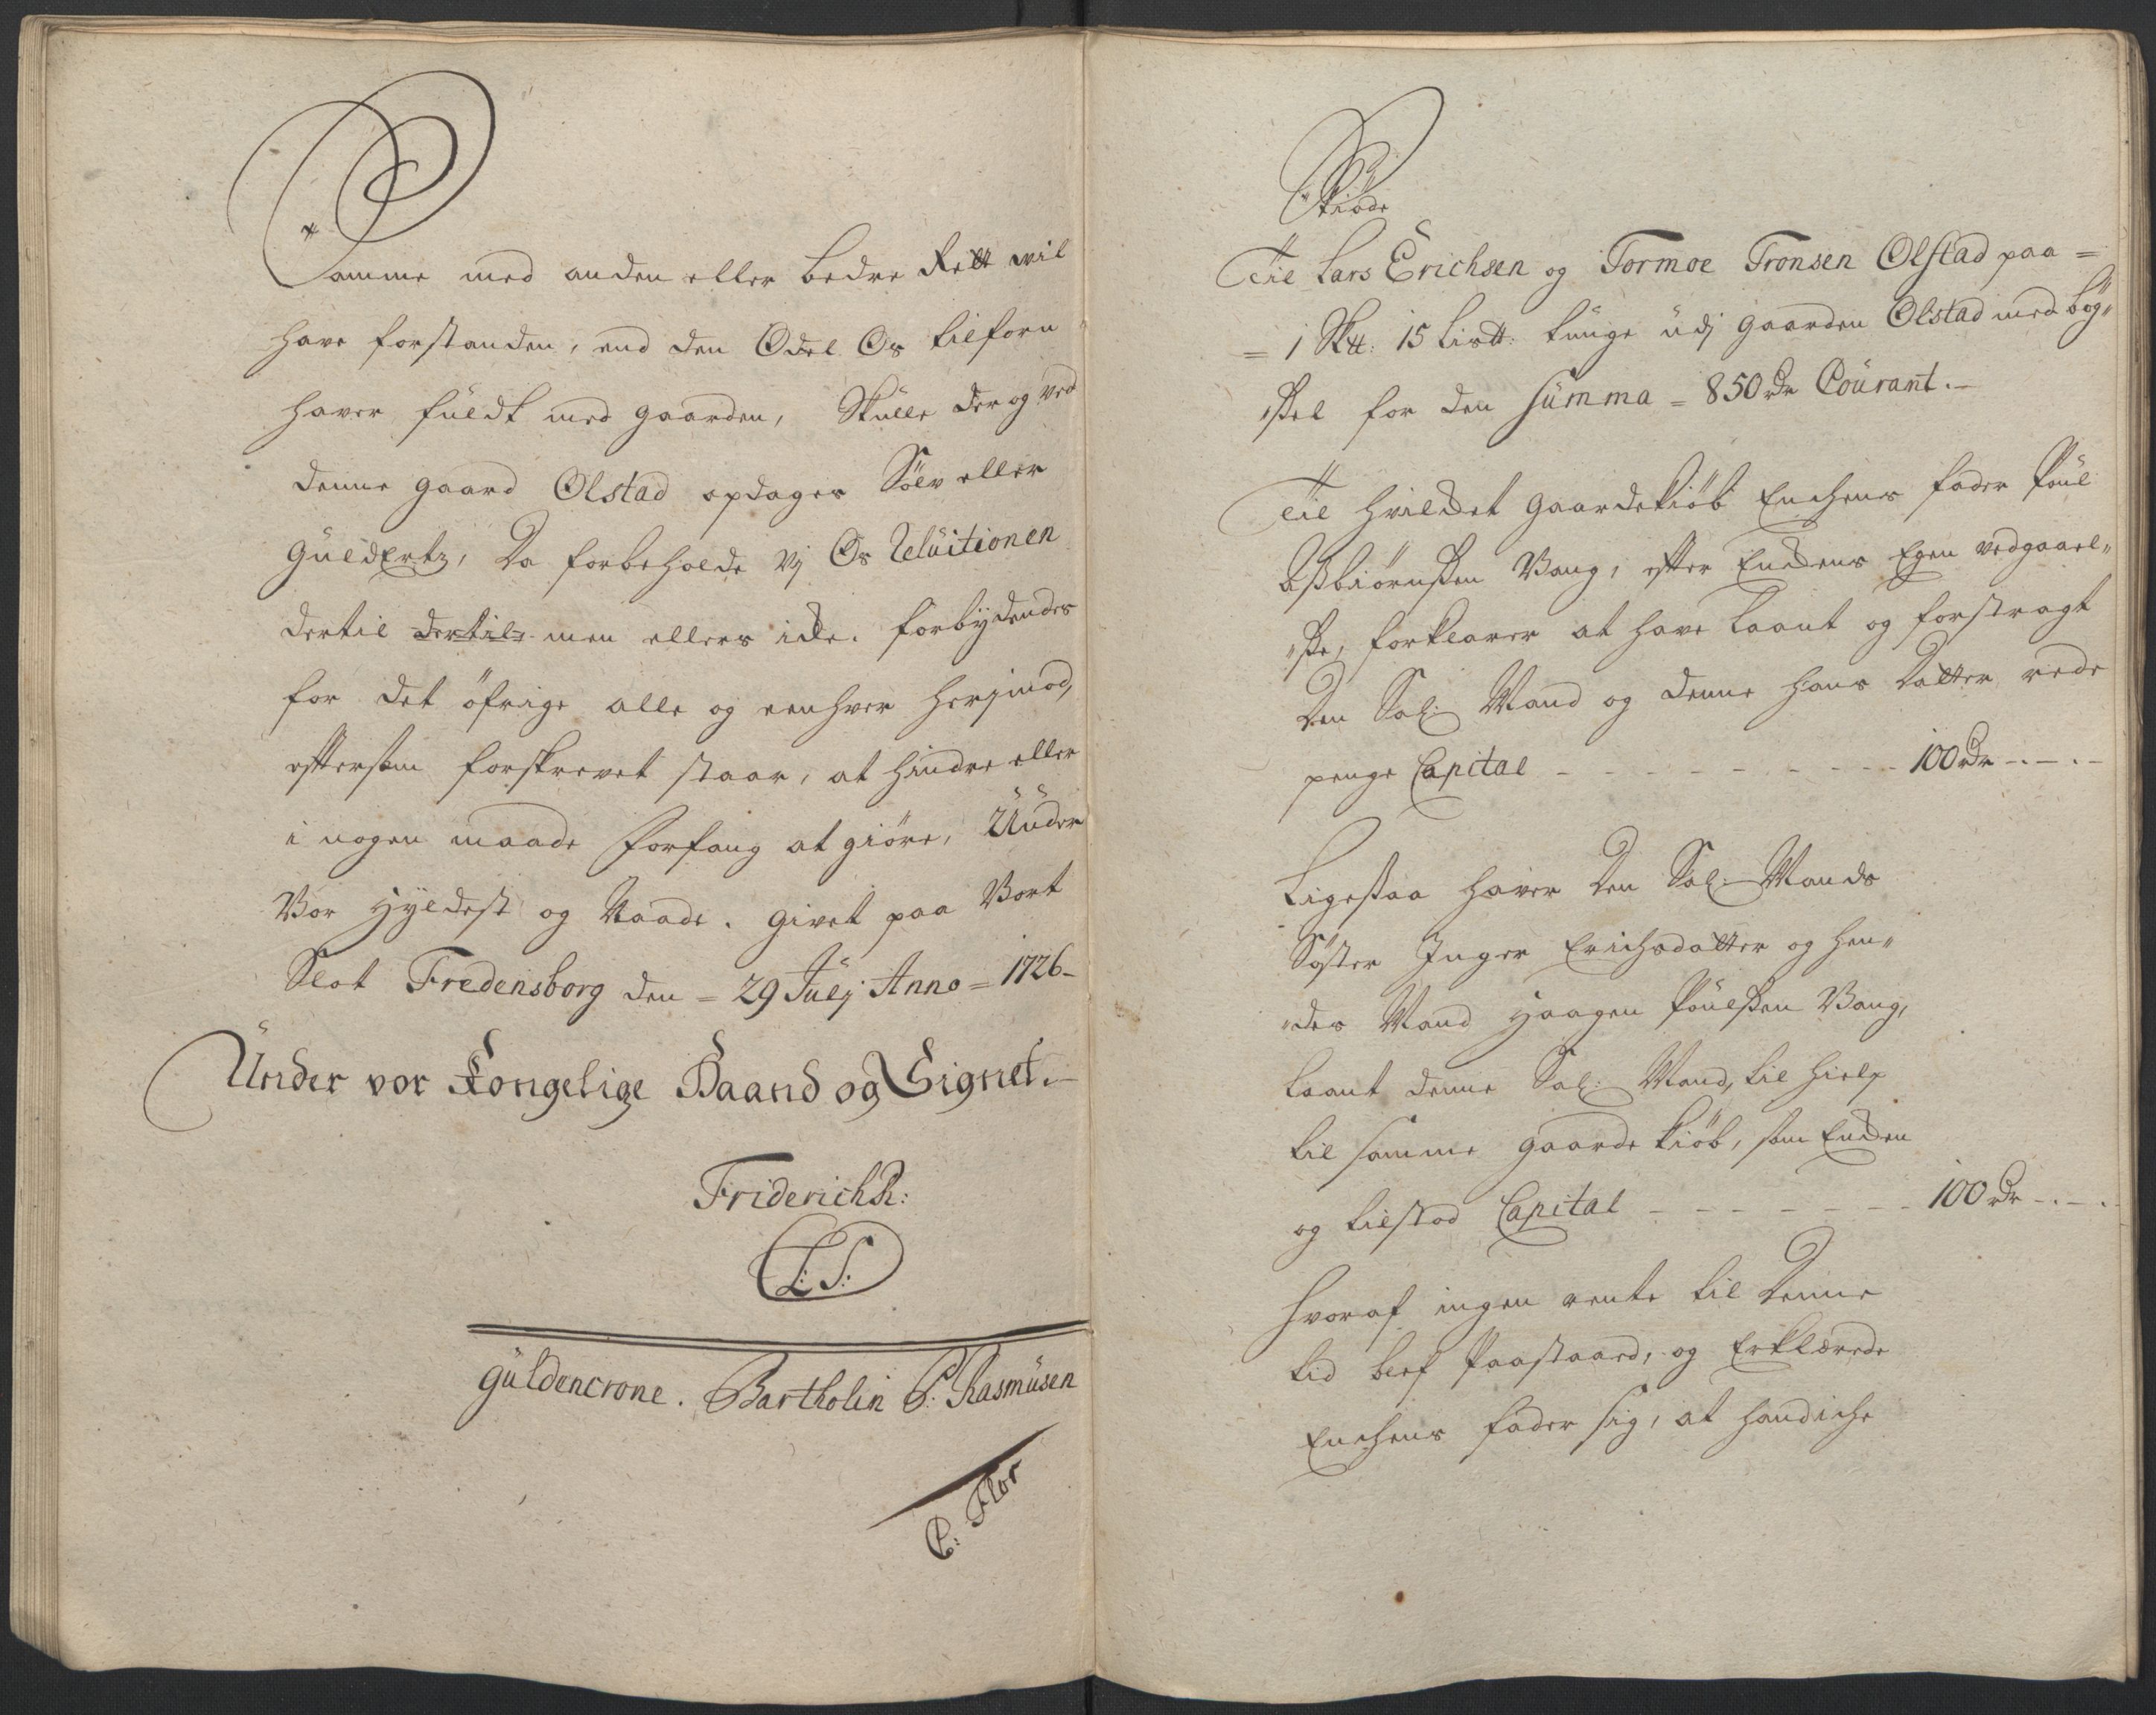 Samme med anden eller bedre Rett wil
have forstanden, end den Odel Os tilforn
haver fuldt med gaarden, Skulle der og ved
denne gaard Olstad opdages Sölv eller
Guldertz, Da forbeholde Vj Os Reluitionen
dertil dertil men ellers icke. forbydendes
for det öfrige alle og eenhver herjmod,
eftersom forskrevet staar, at hindre eller
i nogen maade forfang at giöre, Under
Vor Hyldest og Naade. givet paa Vort
Slot Fredensborg den = 29 Julj Anno = 1726 -
Under vor Kongelige Haand og Signet.-
Friderich R:
L: S:
Güldencrone. Bartholin P: Rasmüsen
P: Flor
Skiöde
Til Lars Erichsen og Tormoe Tronsen Olstad paa =
= 1 Sk tt: 15 Lis tt: tunge udj gaarden Olstad med böx„
„sel for den Summa = 850 rdr Courant.-
Til hvilcket gaardekiöb Enchens fader Poul
Asbiörnsen Vang, efter Enckens Egen vedgaael„
„se, forklarer at have laant og forstragt
den Sal: Mand og denne hans datter rede
penge Capital - - - - - - - - - 100 rdr -.-.-
Ligesaa haver den Sal: Mands
Söster Inger Erichsdatter og hen„
„des Mand Haagen Poulsen Vang,
laant denne Sal: Mand, til hielp
til samme gaarde kiöb, som Encken
og tilstod Capital - - - - - - - 100 rdr -.-.
hvoraf ingen rente til denne
tid blef paastaaed, og Erklærede
Enchens fader sig, at hand iche